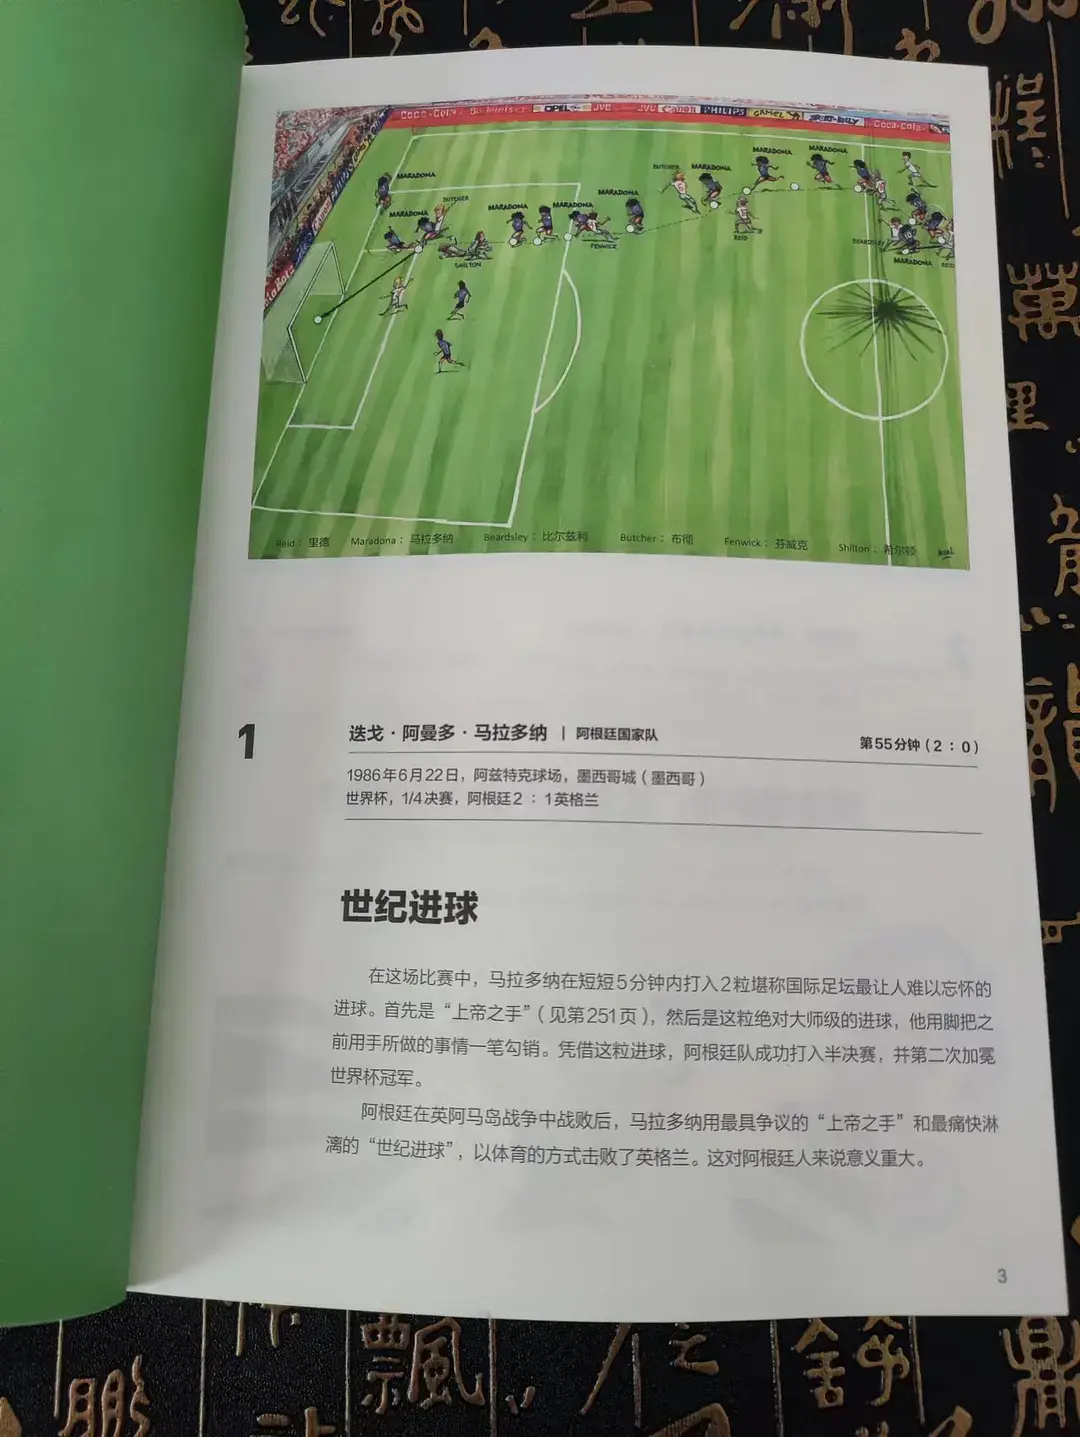 Coca-Cola Budweiser OPEL JVC JVC Canon PHILIPS CAMEL Coca-Cola
MARADONA
MARADONA
BUTCHER
SHILTON
MARADONA
MARADONA
MARADONA
FENWICK
BUTCHER
MARADONA
MARADONA
REID
MARADONA
BEARDSLEY
MARADONA
REID
Reid：里德 Maradona：马拉多纳 Beardsley：比尔兹利 Butcher：布彻 Fenwick：芬威克 Shilton：希尔顿
1
迭戈·阿曼多·马拉多纳 | 阿根廷国家队 第55分钟（2：0）
1986年6月22日，阿兹特克球场，墨西哥城（墨西哥）
世界杯，1/4决赛，阿根廷2：1英格兰
世纪进球
在这场比赛中，马拉多纳在短短5分钟内打入2粒堪称国际足坛最让人难以忘怀的
进球。首先是“上帝之手”（见第251页），然后是这粒绝对大师级的进球，他用脚把之
前用手所做的事情一笔勾销。凭借这粒进球，阿根廷队成功打入半决赛，并第二次加冕
世界杯冠军。
阿根廷在英阿马岛战争中战败后，马拉多纳用最具争议的“上帝之手”和最痛快淋
漓的“世纪进球”，以体育的方式击败了英格兰。这对阿根廷人来说意义重大。
3